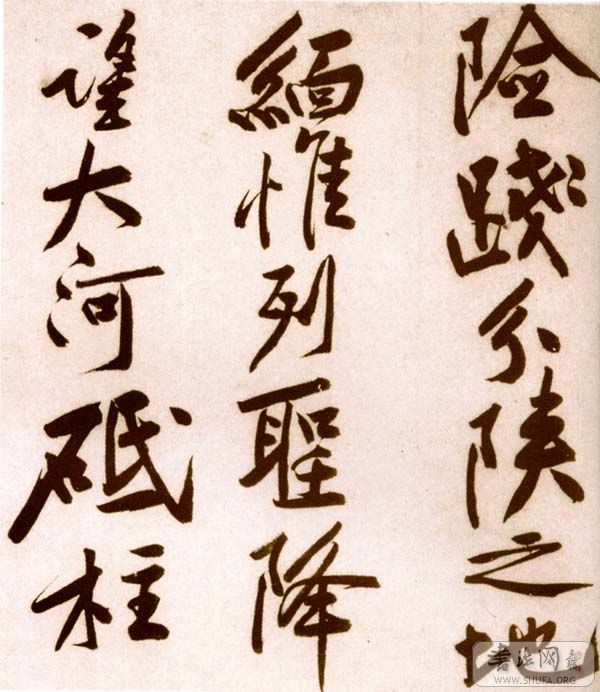 險踐分陝之地
緬惟列聖降
望大河砥柱
書法网
WWW.SHUFA.ORG